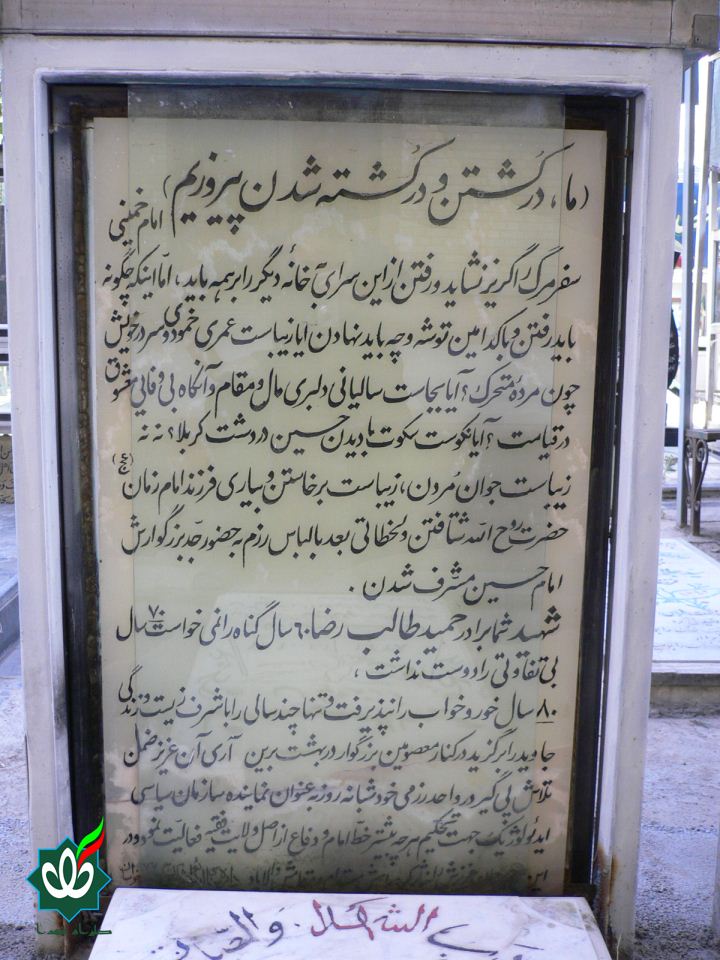 (ما، در کُشتن و در کُشته شدن پیروزیم) امام خمینی
سفر مرگ را گریز نشاید و رفتن از این سرای به خانهٔ دیگر را بر همه باید، امّا اینکه چگونه
باید رفتن و با کدامین توشه و چه باید نهادن آیا زیباست عمری خمودی و سر در خویش
چون مردهٔ متحرک؟ آیا بجاست سالیانی دلبری مال و مقام و آنگاه بی وفایی معشوق
در قیامت؟ آیا نکوست سکوت با دیدن حسین در دشت کربلا؟ نه نه
زیباست جوان مُردن، زیباست برخاستن و بیاری فرزند امام زمان (عج)
حضرت روح الله شتافتن و لحظاتی بعد با لباس رزم به حضور جدّ بزرگوارش
امام حسین مشرّف شدن .
شهید شما برادر حمید طالب رضا ۶۰ سال گناه را نمی خواست ۷۰ سال
بی تفاوتی را دوست نداشت ،
۸۰ سال خور و خواب را نپذیرفت و تنها چند سالی را با شرف زیست و زندگی
جاوید را برگزید در کنار معصومین بزرگوار در بهشت برین آری آن عزیز ضمن
تلاش پی گیر در واحد رزمی خود شبانه روز به عنوان نماینده سازمان سیاسی
ایدئولوژیک جهت تحکیم هر چه بیشتر خط امام و دفاع از اصل ولایت فقیه فعالیت نمود و در
این
الشهداء و الص